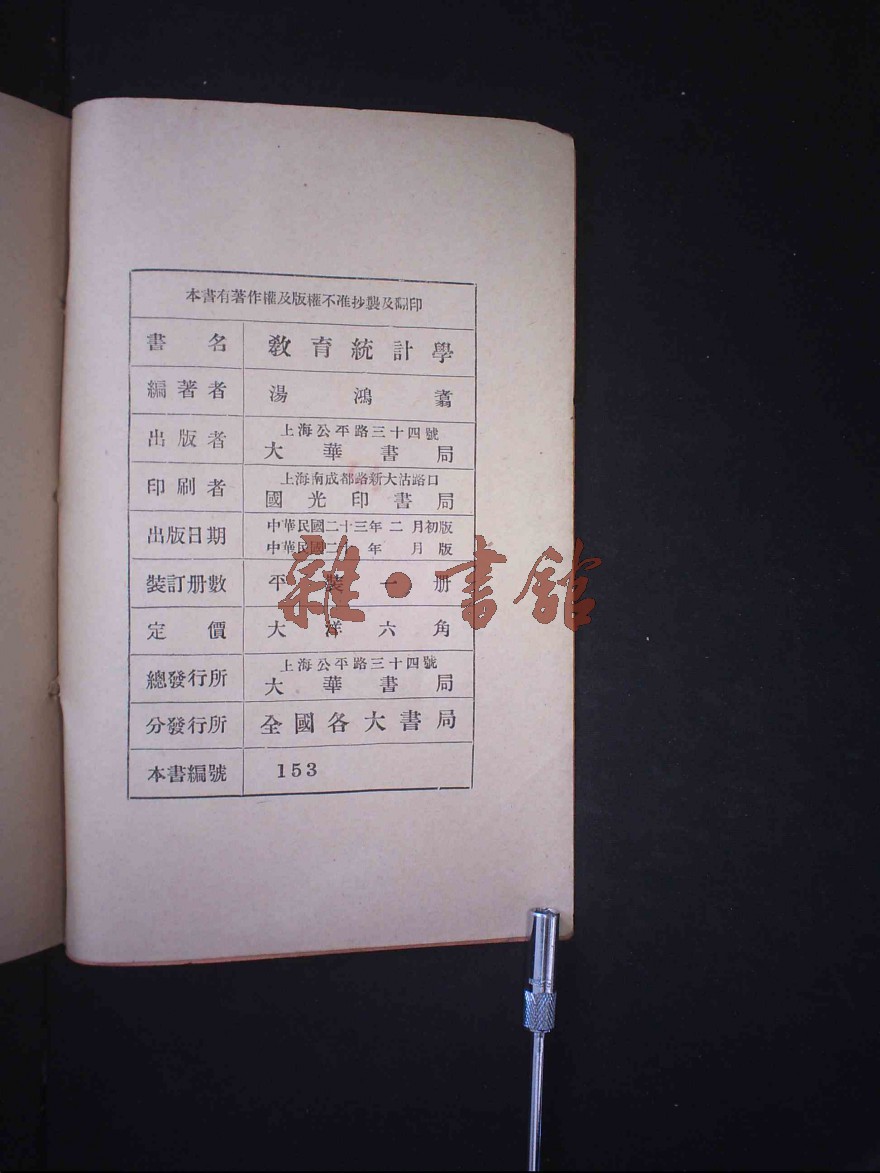 本書有著作權及版權不准抄襲及翻印
書名 教育統計學
編著者 湯鴻翥
出版者 上海公平路三十四號
大華書局
印刷者 上海南成都路新大沽路口
國光印書局
出版日期 中華民國二十三年二月初版
中華民國二十年月版
裝訂册數 平裝一册
定價 大洋六角
總發行所 上海公平路三十四號
大華書局
分發行所 全國各大書局
本書編號 153
雜·書館